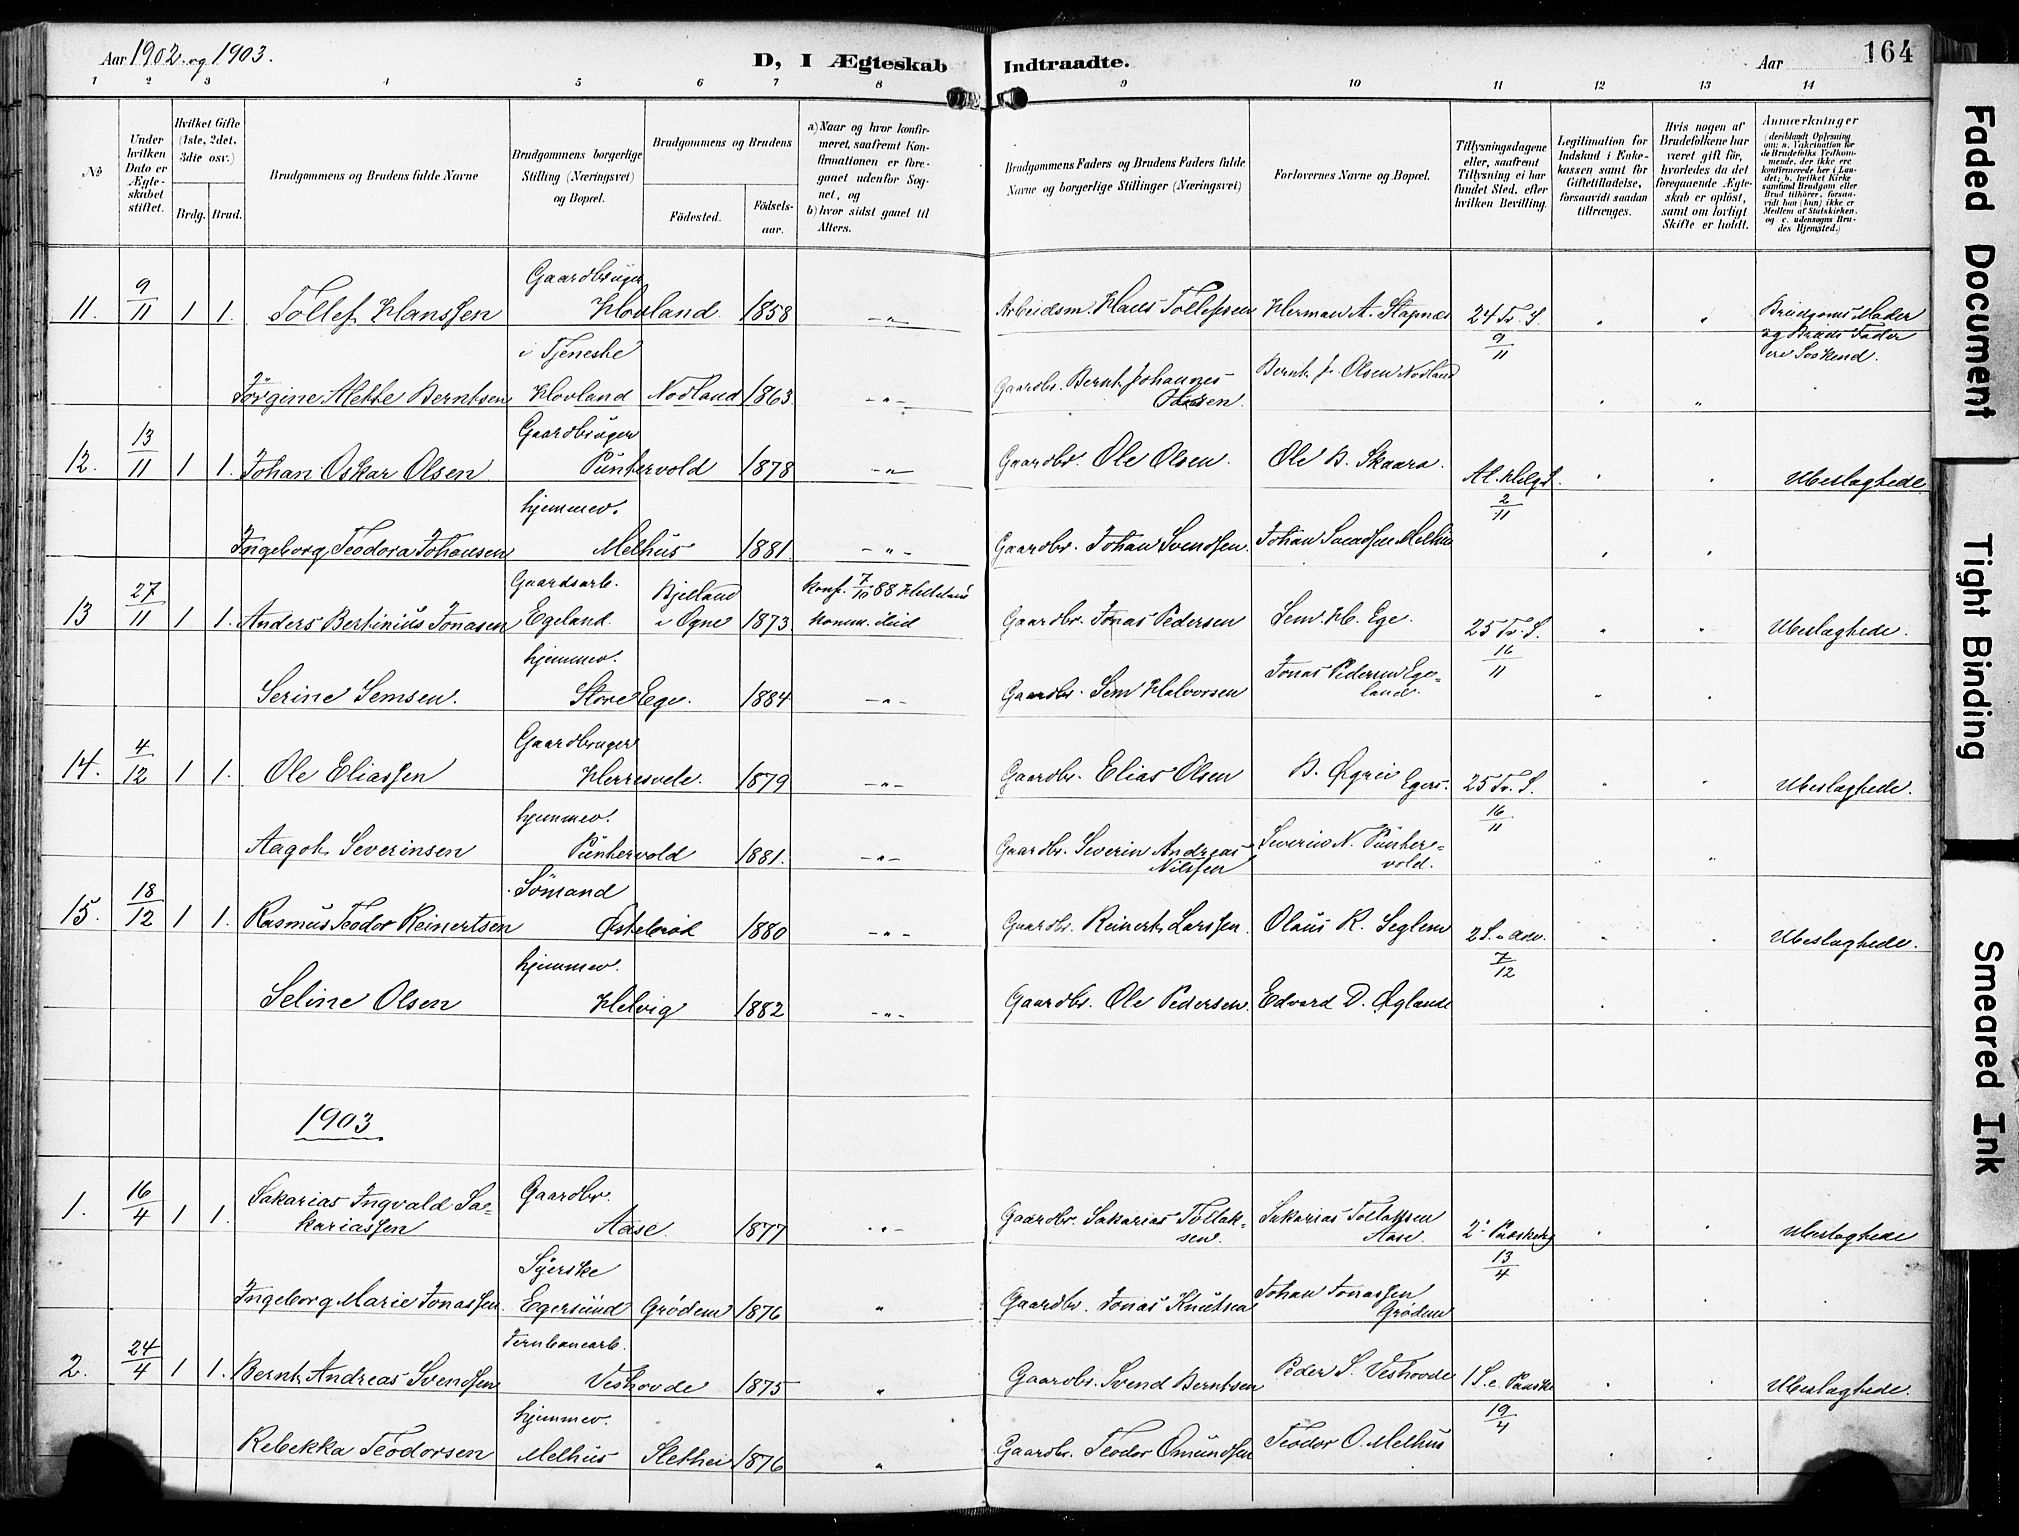 Aar 1902 og 1903.
D, I Ægteskab Indtraadte.
Aar
164
1 2 3 4 5 6 7 8 9 10 11 12 13 14
No
Under hvilken Dato er Ægteskabet stiftet.
Hvilket Gifte (1ste, 2det, 3die osv.)
Brdg. Brud.
Brudgommens og Brudens fulde Navne
Brudgommens borgerlige Stilling (Næringsvei) og Bopæl.
Brudgommens og Brudens
Fødested. Fødsels-aar.
a) Naar og hvor konfirmeret, saafremt Konfirmationen er foregaaet udenfor Sognet, og
b) hvor sidst gaaet til Alters.
Brudgommens Faders og Brudens Faders fulde Navne og borgerlige Stillinger (Næringsvei)
Forlovernes Navne og Bopæl.
Tillysningsdagene eller, saafremt Tillysning ei har fundet Sted, efter hvilken Bevilling.
Legitimation for Indskud i Enkekassen samt for Giftetilladelse, forsaavidt saadan tiltrænges.
Hvis nogen af Brudefolkene har været gift før, hvorledes da det foregaaende Ægteskab er opløst, samt om lovligt Skifte er holdt.
Anmærkninger (deriblandt Oplysning om: a. Vakcination for de Brudefolks Vedkommende, der ikke ere konfirmerede her i Landet; b. hvilket Kirkesamfund Brudgom eller Brud tilhører, forsaavidt han (hun) ikke er Medlem af Statskirken, og c. udensogns Brudes Hjemsted.)
11. 9/11 1 1. Tollef Hanssen Gaardbruger Hovland 1858 -"- Arbeidsm. Hans Tollefsen Herman A. Stapnes 24 Tr. S. 9/11 " " Brudgoms Moder og Bruds Fader ere Søskend.
Jørgine Mette Berntsen i Tjeneste Hovland Nodland 1863 -"- Gaardbr. Bernt Johannes Olsen Bernt J. Olsen Nodland " "
12. 13/11 1 1. Johan Oskar Olsen Gaardbruger Puntervold 1878 -"- Gaardbr. Ole Olsen. Ole B. Skaara. Al. Helgd. 2/11 " " Ubeslægtede
Ingeborg Teodora Johansen hjemmev. Melhus 1881. -"- Gaardbr. Johan Svendsen. Johan Svendsen Melhus " "
13 27/11 1 1. Anders Bertinius Jonasen Gaardsarb. Egeland. Bjelland i Ogne 1873. Konf. 7/10 88 Helleland Komm. ibid Gaardbr. Jonas Pedersen Sem. H. Ege. 25 Tr. S. 16/11 " " Ubeslægtede.
Serine Semsen. hjemmev. Store Ege. 1884 -"- Gaardbr. Sem Halvorsen Jonas Pedersen Egeland. " "
14. 4/12 1 1. Ole Eliassen Gaardbruger Herresvele. 1879 -"- Gaardbr. Elias Olsen B. Øgrei Egers. 25 Tr. S. 16/11 " " Ubeslægtede.
Aagot Severinsen hjemmev. Puntervold 1881. -"- Gaardbr. Severin Andreas Nilssen Severin N. Puntervold. " "
15. 18/12 1 1. Rasmus Teodor Reinertsen Sømand Østebrød 1880 -"- Gaardbr. Reinert Larssen. Olaus R. Seglem 2 S. i Adv. 7/12 " " Ubeslægtede.
Seline Olsen hjemmev. Helvig 1882 -"- Gaardbr. Ole Pedersen. Edvard D. Øglænd " "
1903
1. 16/4 1 1. Sakarias Ingvald Sakariassen Gaardbr. Aase. 1877 -"- Gaardbr. Sakarias Tollaksen. Sakarias Tollaksen Aase 2: Paaskedg 13/4 " " Ubeslægtede
Ingeborg Marie Jonassen Syerske Egersund Grødem 1876 " Gaardbr. Jonas Knutsen Johan Jonassen Grødem " "
2. 24/4 1 1. Bernt Andreas Svendsen Jernbanearb. Veshovde 1875 " Gaardbr. Svend Berntsen Peder S. Veshovde 1 S. e. Paaske 19/4 " " Ubeslægtede.
Rebekka Teodorsen hjemmev. Melhus Slethei 1876 " Gaardbr. Teodor Omundsen Teodor O. Melhus " "
Faded Document
Tight Binding
Smeared Ink